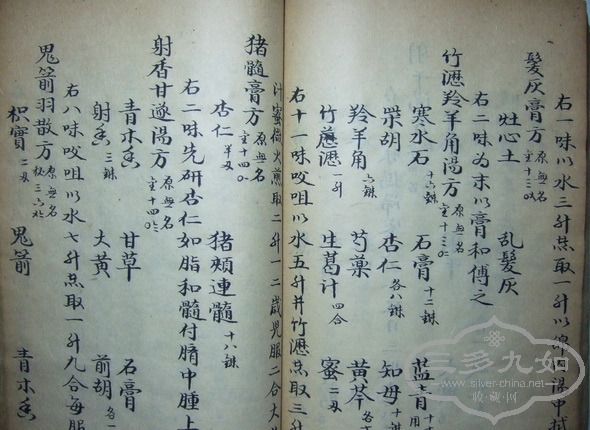 右一味以水三升煮取一升以綿沾口中拭
髪灰膏方 原無名
灶心土 乱髪灰
右二味为末以膏和傅之
竹瀝羚羊角湯方 原無名
寒水石 十六銖 石膏 十二銖 藍青
柴胡 杏仁 各八銖 知母
羚羊角 六銖 芍薬 黄芩
竹瀝 一升 生葛汁 四合 蜜
右十一味㕮咀以水五升并竹瀝煮取三升
汁蜜微火煎取二升一二歳児服二合大
猪髓膏方 原無名
杏仁 猪頬連髓 十八銖
右二味先研杏仁如脂和髓付中腫上
射香甘遂湯方 原無名
青木香 甘草 石膏
射香 三銖 大黄 前胡
右八味㕮咀以水七升煮取一升九合每服
鬼箭羽散方 原無名
枳實 鬼箭 青木香
三多九如
www.silver-china.net
收藏网